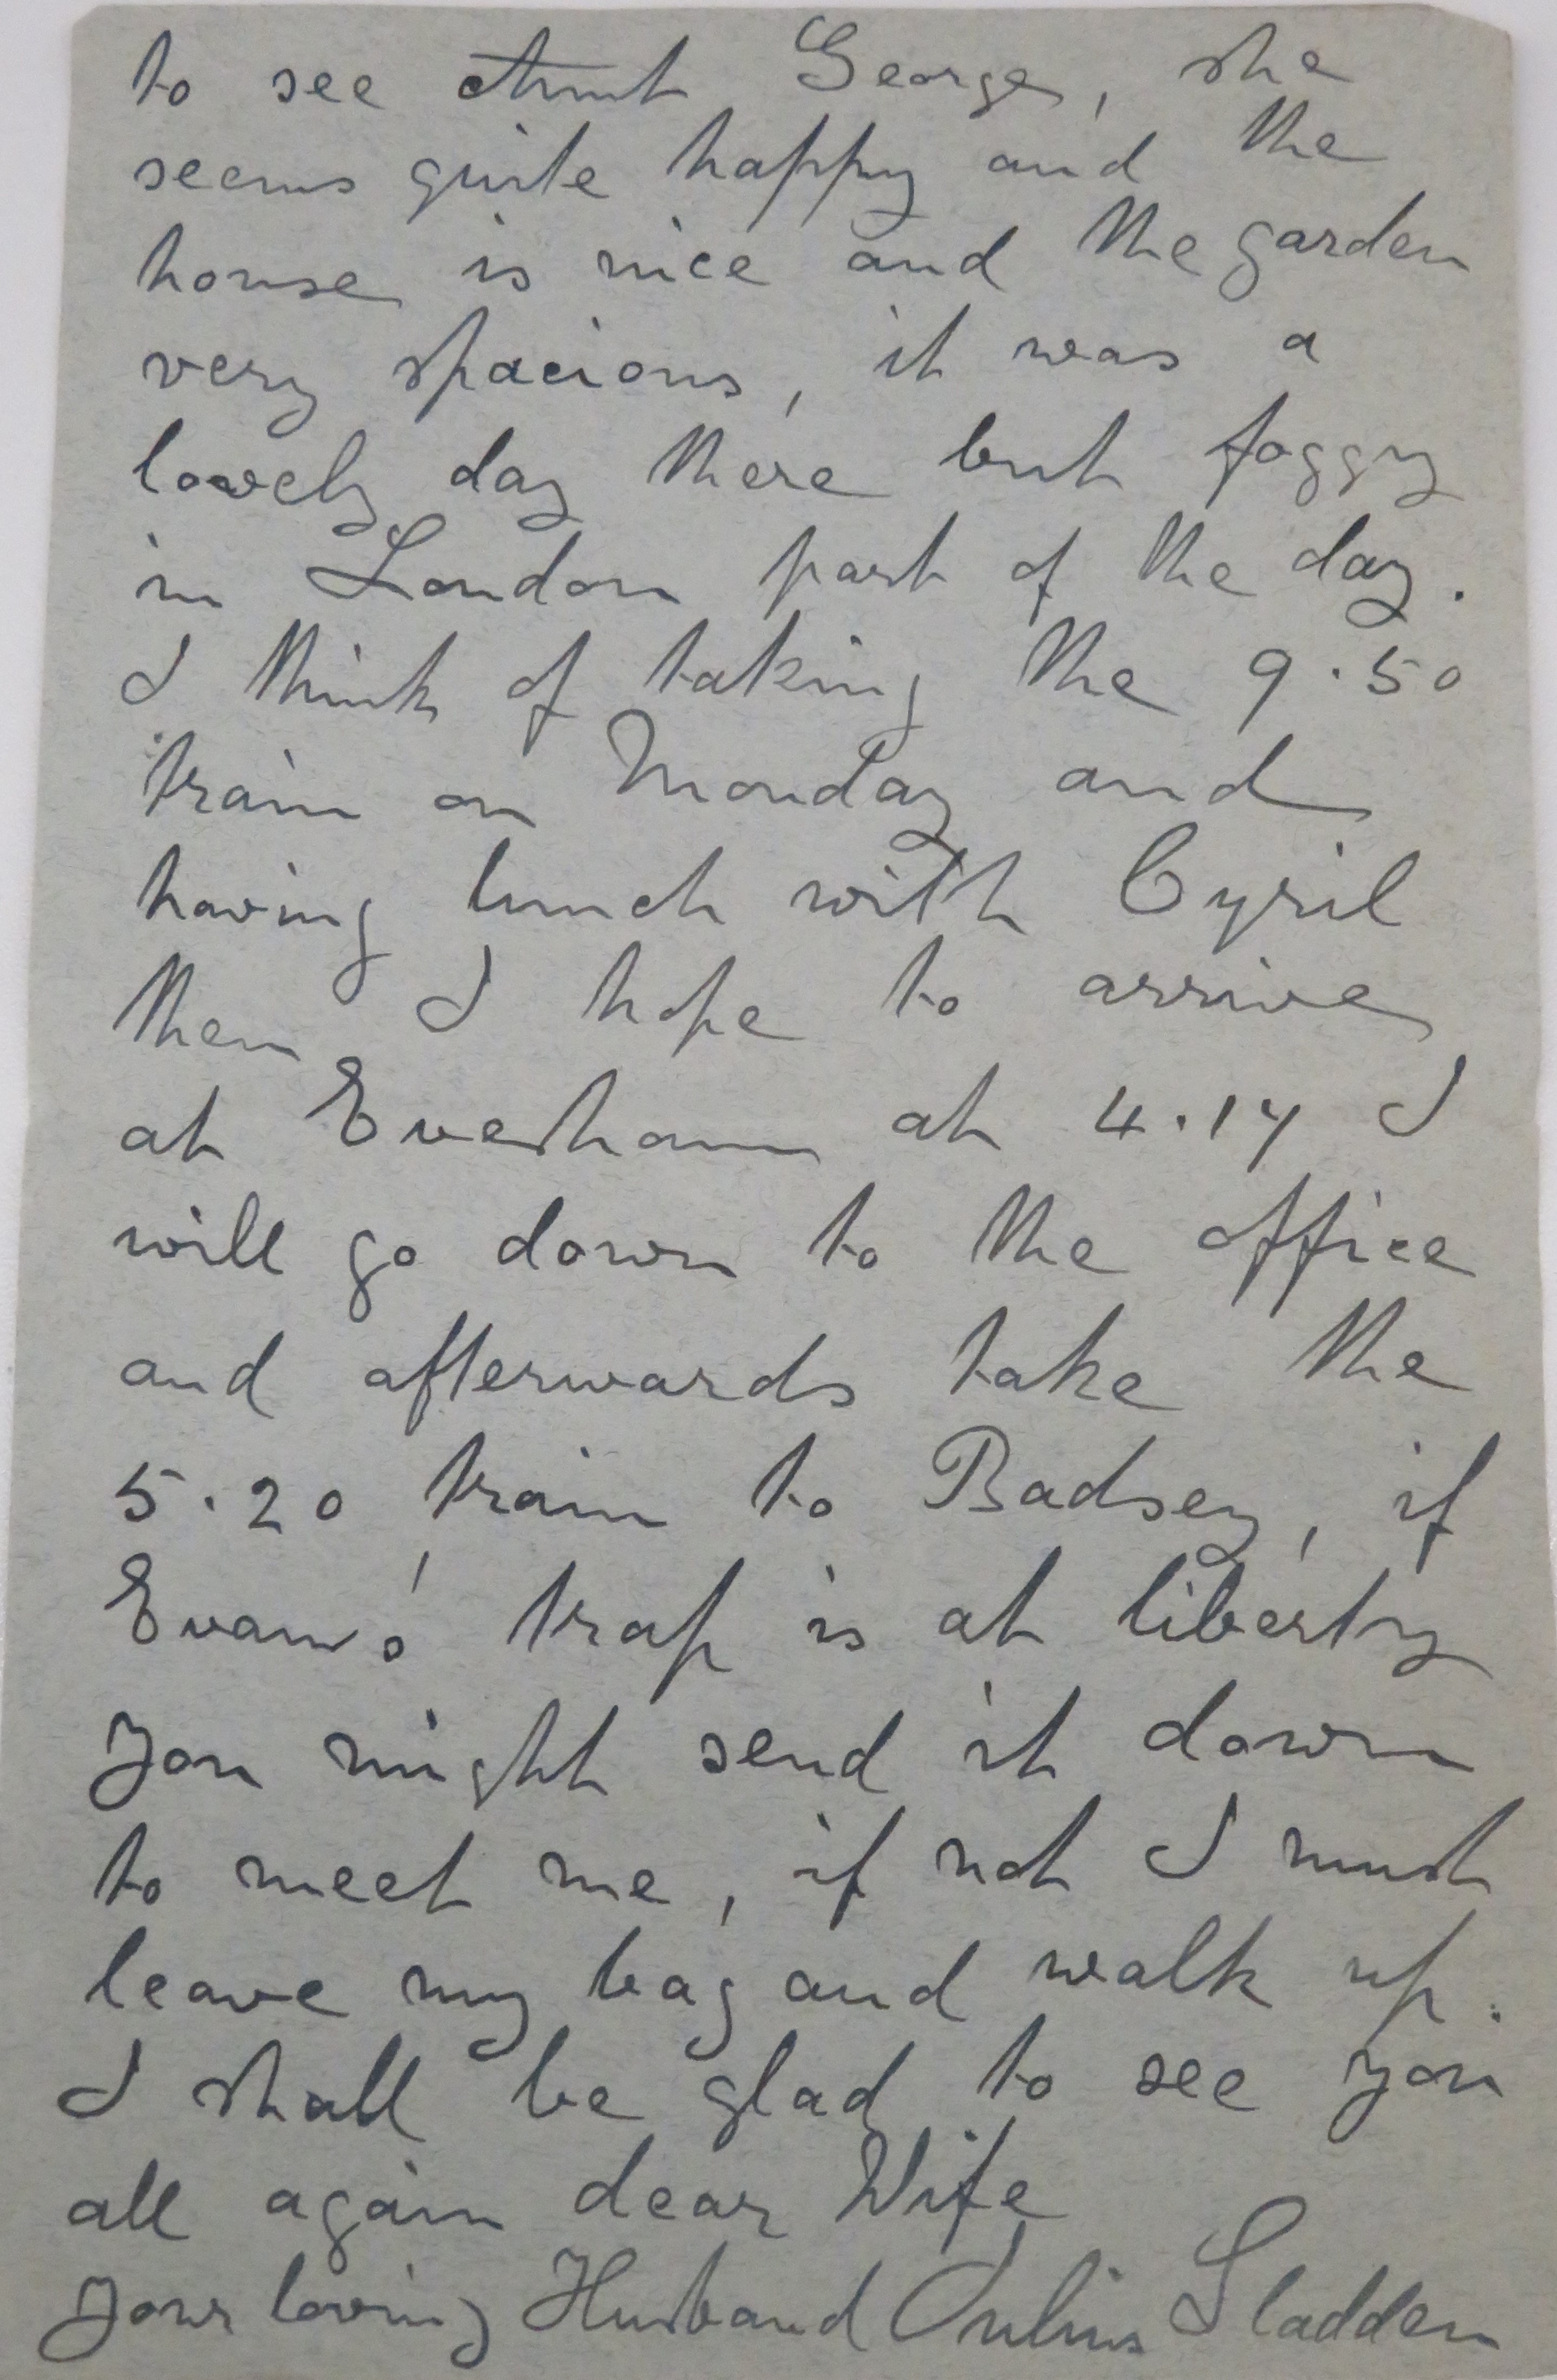 to see Aunt George, she
seems quite happy and the
house is nice and the garden
very spacious, it was a
lovely day there but foggy
in London part of the day.
I think of taking the 9.50
train on Monday and
having lunch with Cyril
then I hope to arrive
at Evesham at 4.14 I
will go down to the office
and afterwards take the
5.20 train to Badsey, if
Evans' trap is at liberty
you might send it down
to meet me, if not I must
leave my bag and walk up.
I shall be glad to see you
all again dear Wife
Your loving Husband Julius Sladden